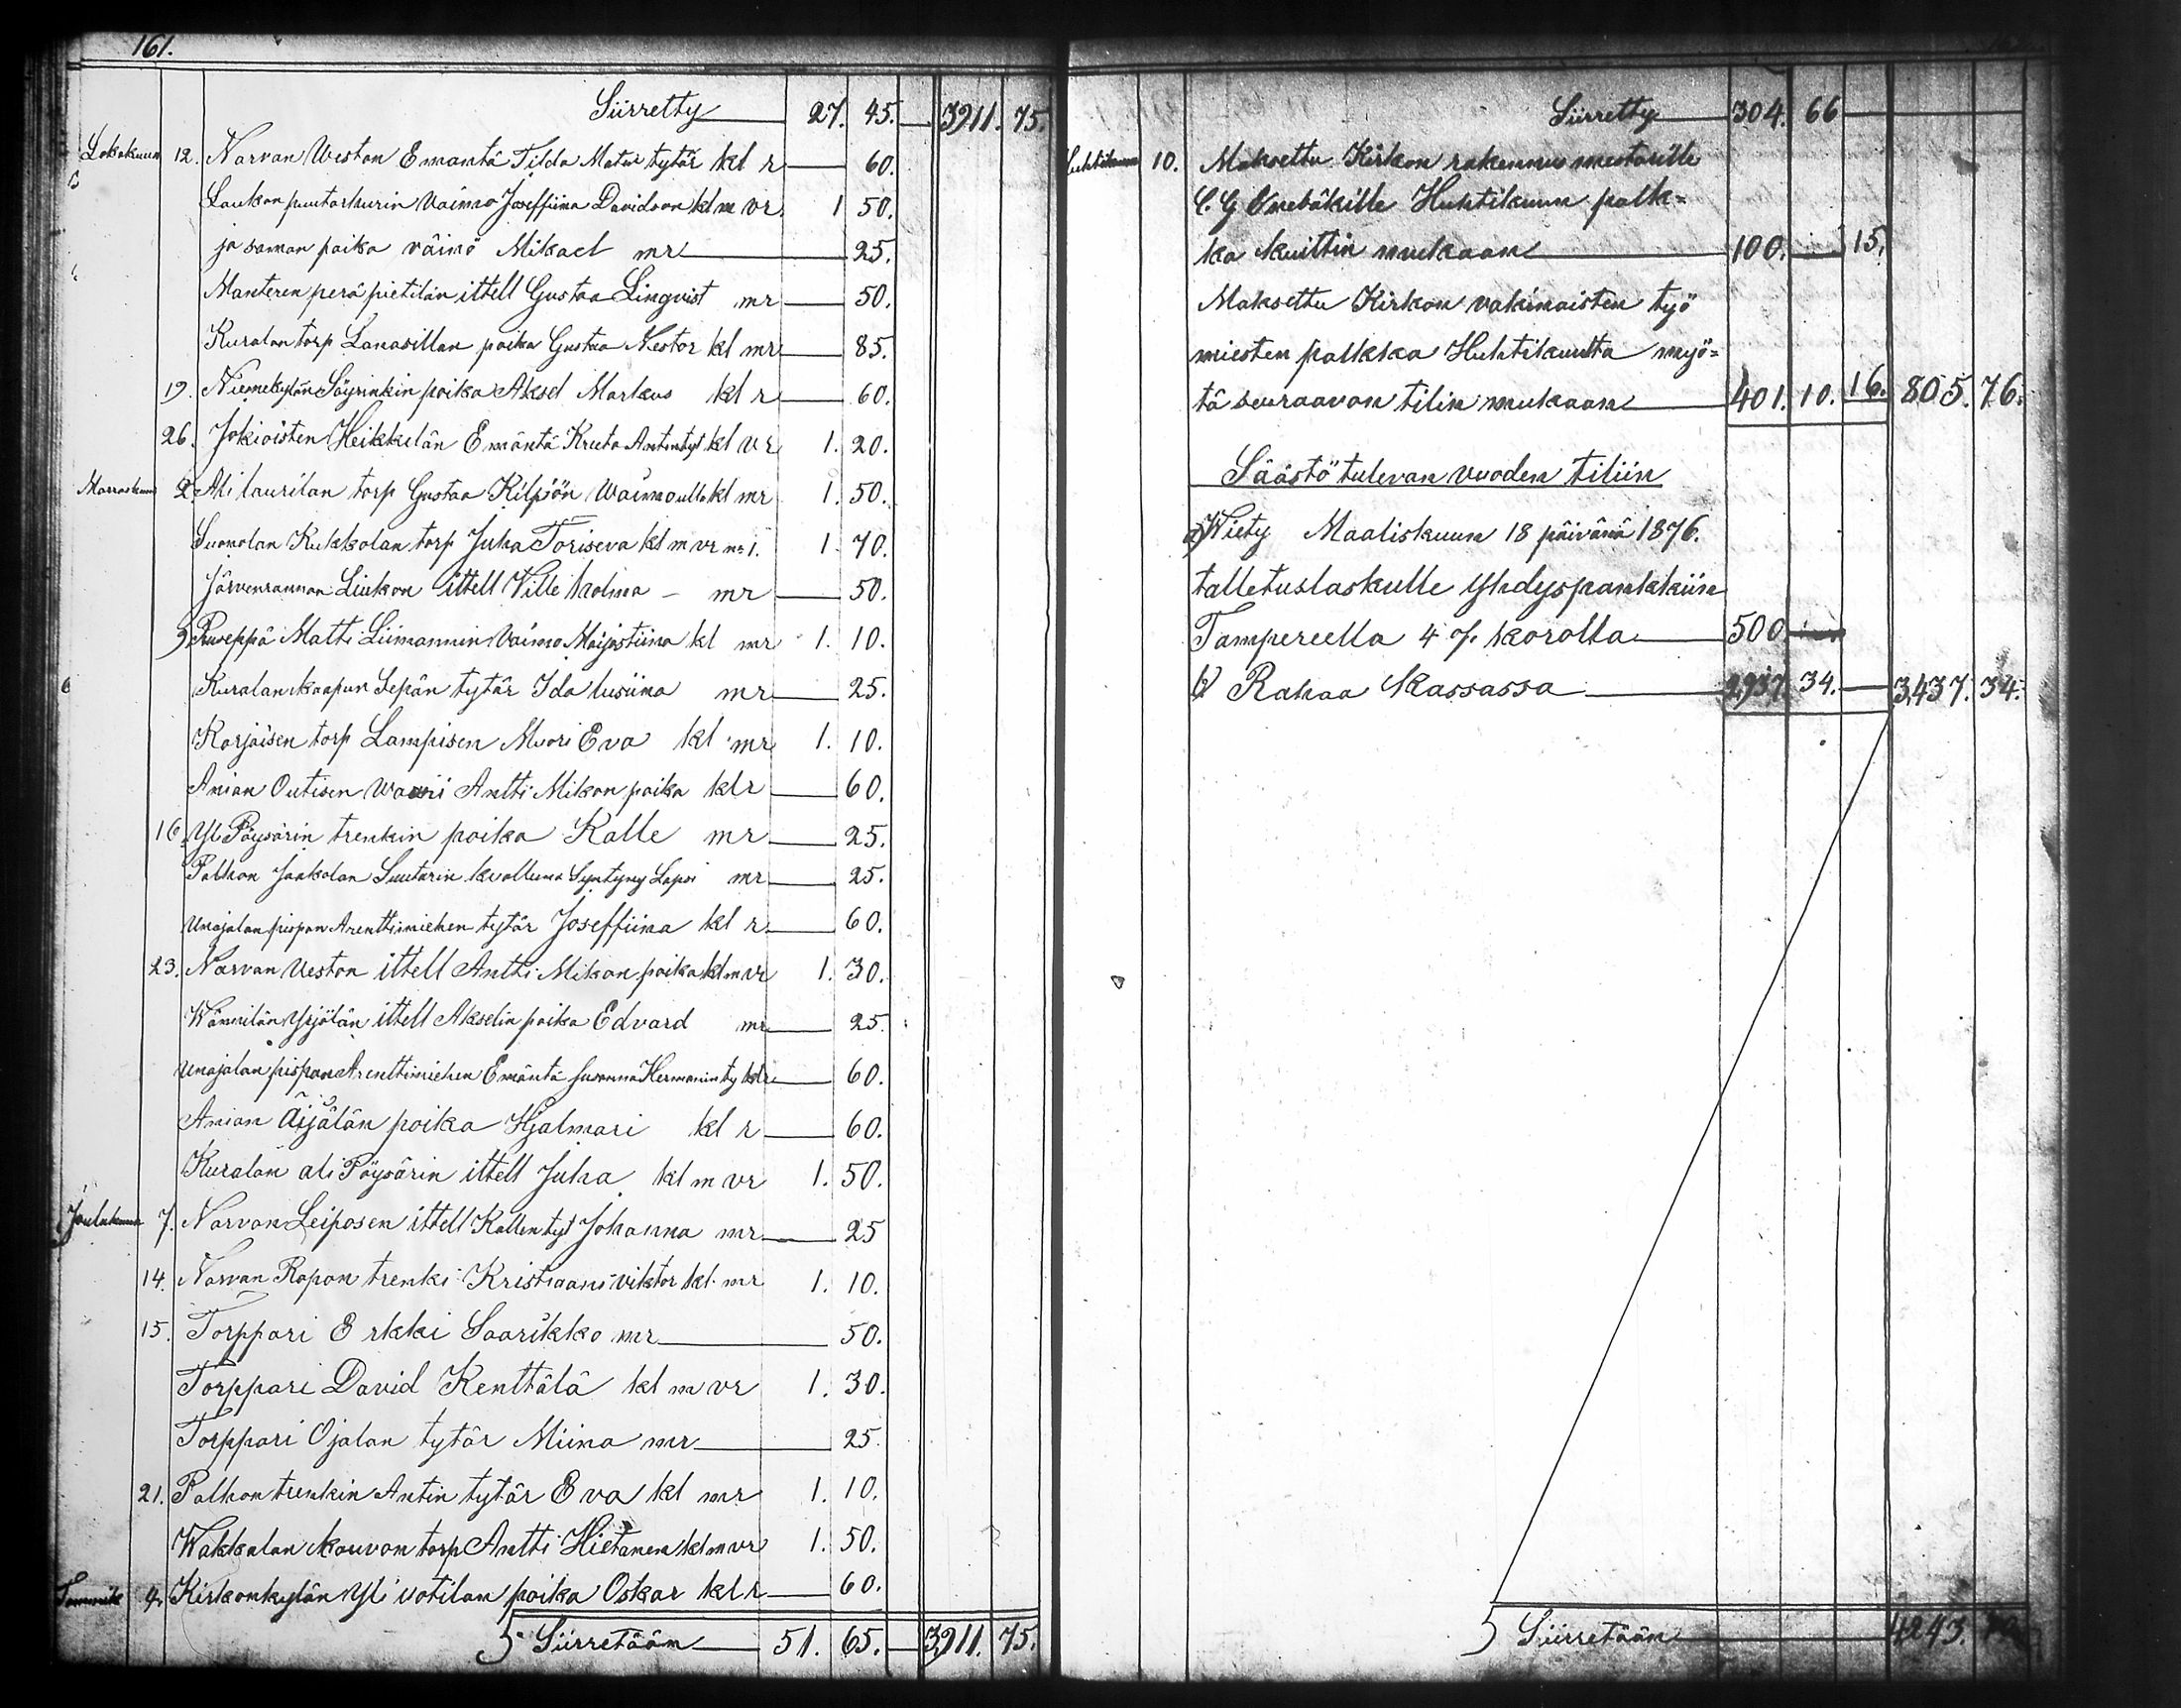 161.
Siirretty 27. 45. 3911. 75.
Lokakuun 12. Narvan Weston Emäntä Tilda Matin tytär kl r 60.
Laukon puutarhurin Vaimo Joseffiina Davidson kl m vr 1 50.
ja saman poika väinö Mikael mr 25.
Manteren perä pietilän ittell Gustaa Linqvist mr 50.
Kuralan torp Lanasillan poika Gustaa Nestor kl mr 85.
19. Niemekylän Söyrinkin poika Aksel Markus kl r 60.
26. Jokioisten Heikkilän Emäntä Kreeta Antintyt kl vr 1. 20.
Marraskuun 2. Ali laurilan torp Gustaa Kilpiön Waimo ulla kl mr 1. 50.
Suomolan Kukkolan torp Juha Toriseva kl m vr 1. 70.
Järvenrannan Liukon ittell Ville holma mr 50.
9 Matti Liimannin Vaimo Maijastiina kl mr 1. 10.
Kuralan kaapun Sepän tytär Ida lusiina mr 25.
Karjaisen torp Lampisen Muori Eva kl mr 1. 10.
Anian Outisen Waari Antti Mikon poika kl r 60.
16 Yli Pöysärin trenkin poika Kalle mr 25.
Palhon Jaakolan Suutarin kuolluna Syntyny Lapsi mr 25.
Unajalan pispan Arenttimiehen tytär Joseffiina kl r 60.
23. Narvan Veston ittell Antti Mikon poika kl m vr 1. 30.
Wännilän Yrjölän ittell Akselin poika Edvard mr 25.
Unajalan pispan Arenttimiehen Emäntä Susanna Hermannin ty kl r 60.
Anian Äijälän poika Hjalmari kl r 60.
Kuralan ali Pöysärin ittell Juha kl m vr 1. 50.
Joulukuun 7. Narvan Leiposen ittell Kallen tyt Johanna mr 25
14. Narvan Rapon trenki Kristiaani viktor kl mr 1. 10.
15. Torppari Erkki Saarikko mr 50.
Torppari David Kenttälä kl m vr 1. 30.
Torppari Ojalan tytär Miina mr 25.
21. Palhon trenkin Antin tytär Eva kl mr 1. 10.
Wakkalan kouvon torp Antti Hietanen kl m vr 1. 50.
4. Kirkonkylän Yli votilan poika Oskar kl r 60.
Siirretään 51. 65. 3911. 75.
Siirretty 304. 66
Huhtikuun 10. Maksettu Kirkon rakennus mestarille
C. G Huhtikuun palk=
ka kuittin mukaan 100. 15.
Maksettu Kirkon vakinaisten työ
miesten palkka Huhtikuulta myö=
tä seuraavan tilin mukaan 401. 10. 16. 805. 76.
Säästö tulevan vuoden tiliin
a) Wiety Maaliskuun 18 päivänä 1876.
talletuslaskulle Yhdyspankkiin
Tampereella 4 % korolla 500
b) Rahaa Kassassa 2937. 34. 3437. 34.
Siirretään 4243.